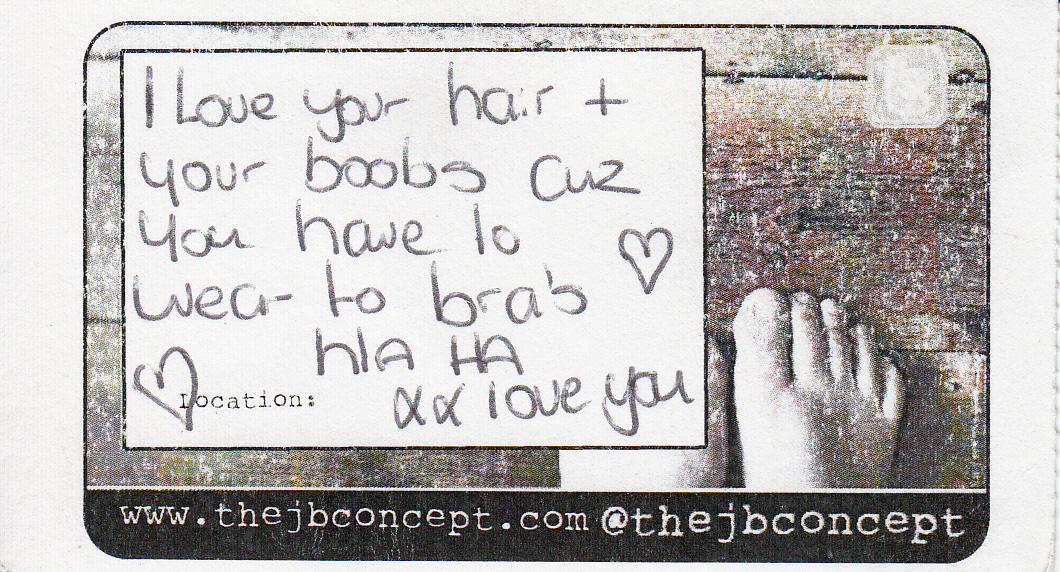 I Love your hair +
your boobs cuz
you have to
wear to bra's
HA HA
xx love you
Location:
www.thejbconcept.com @thejbconcept